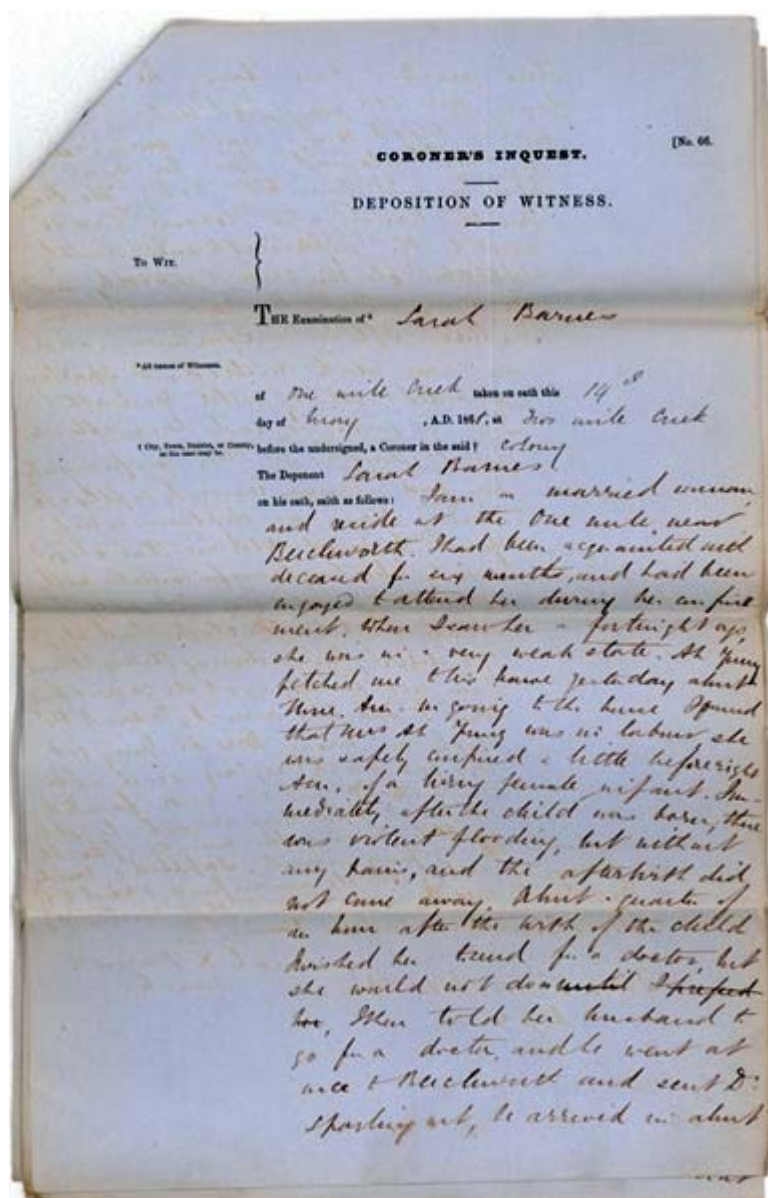 [No. 66.
CORONER'S INQUEST.
DEPOSITION OF WITNESS.
To Wit.
The Examination of* Sarah Barnes
* All names of Witnesses.
of One mile Creek taken on oath this 14th
day of , A.D. 186 , at Two mile Creek
† City, Town, District, or County, as the case may be.
before the undersigned, a Coroner in the said † Colony
The Deponent Sarah Barnes
on his oath, saith as follows: I am a married woman,
and reside at the One mile, near
Beechworth. I had been acquainted with
deceased for six months, and had been
engaged to attend her during her confine
ment. When I saw her a fortnight ago,
she was in a very weak state. Ah Pung
fetched me to his house yesterday about
three Am. on going to the house I found
that Mrs Ah Pung was in labour she
was safely confined a little before eight
Am, of a living female infant. Im-
mediately after the child was born, there
was violent flooding, but without
any pains, and the afterbirth did
not come away. About a quarter of
an hour after the birth of the child
I wished her to send for a doctor, but
she would not do so until I
her, I then told her husband to
go for a doctor, and he went at
once to Beechworth and sent Dr
out, he arrived in about